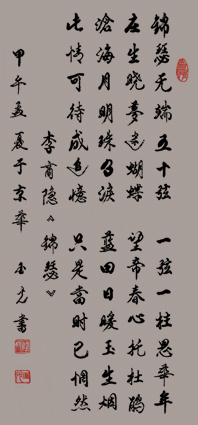 锦瑟无端五十弦 一弦一柱思华年
庄生晓梦迷蝴蝶 望帝春心托杜鹃
沧海月明珠有泪 蓝田日暖玉生烟
此情可待成追忆 只是当时已惘然
李商隐《锦瑟》
甲午孟夏于京华